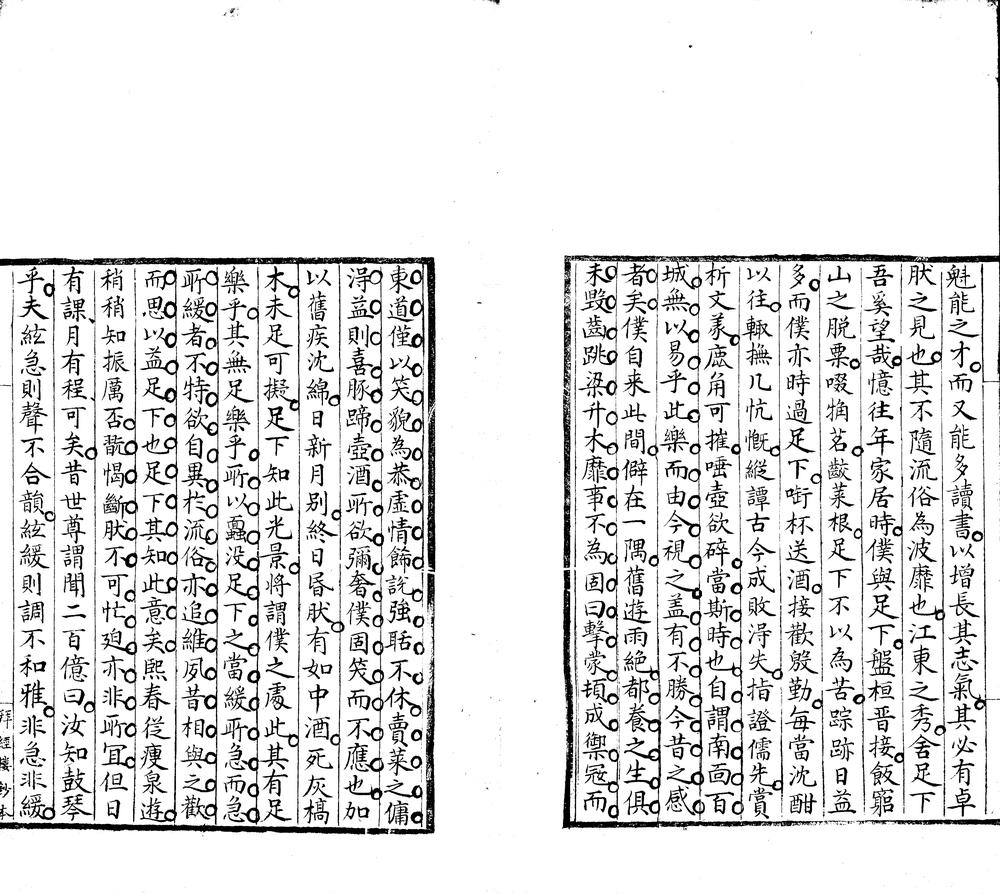 魁能之才而又能多讀書以增長其志氣其必有卓
肰之見也其不隨流俗為波靡也江東之秀舍足下
吾奚望哉憶往年家居時僕與足下盤桓晋接飯窮
山之脱粟啜㺃茗齩菜根足下不以為苦踪跡日益
多而僕亦時過足下衔杯送酒接歡殷勤每當沈酣
以往輙撫几忼慨縱譚古今成敗淂失指證儒先賞
析文㒷鹿角可摧唾壺欲碎當斯時也自謂南面百
城無以易乎此樂而由今視之盖有不勝今昔之感
者矣僕自来此間僻在一隅舊遊雨絶都養之生俱
未毀齒跳梁升木靡事不為固曰擊蒙埙成禦㓂而
東道僅以笑貌為恭虚情餙說強聒不休賣菜之傭
淂益則喜豚蹄壺酒所欲彌奢僕固笑而不應也加
以舊疾沈綿日新月别終日昬肰有如中酒死灰槁
木未足可擬足下知此光景將謂僕之處此其有足
樂乎其無足樂乎所以蠠没足下之當緩所急而急
所緩者不特欲自異於流俗亦追維夙昔相與之歡
而思以益足下也足下其知此意矣熙春從痩泉遊
稍稍知振厲否翫愒斷肰不可忙廹亦非所冝但日
有課月有程可矣昔世尊謂聞二百億曰汝知鼓琴
乎夫絃急則聲不合韻絃緩則調不和雅非急非緩
拜經樓鈔本